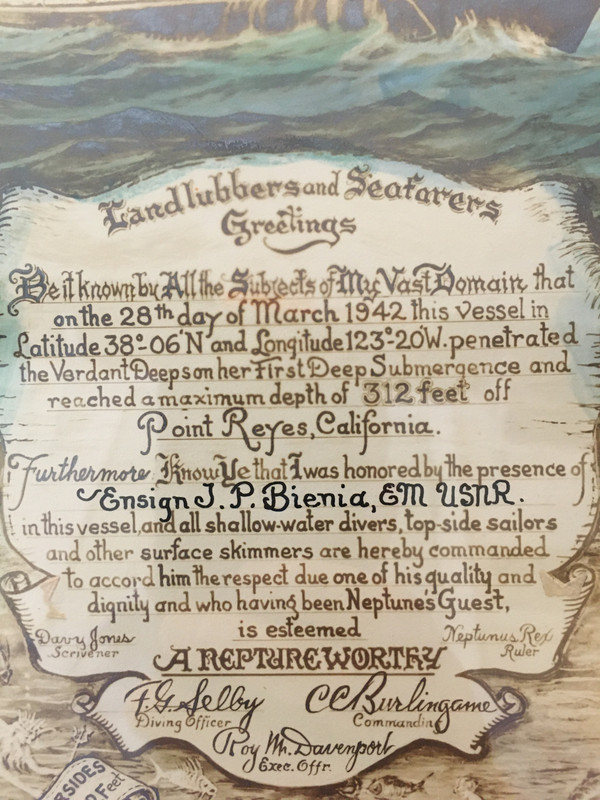 Landlubbers and Seafarers
Greetings
Be it known by All the Subjects of My Vast Domain that
on the 28th day of March 1942 this vessel in
Latitude 38°-06'N and Longitude 123°-20'W. penetrated
the Verdant Deeps on her First Deep Submergence and
reached a maximum depth of 312 feet off
Point Reyes, California.
Furthermore Know Ye that I was honored by the presence of
Ensign J. P. Bienia, EM USNR.
in this vessel, and all shallow-water divers, top-side sailors
and other surface skimmers are hereby commanded
to accord him the respect due one of his quality and
dignity and who having been Neptune's Guest,
is esteemed
A NEPTUREWORTHY
Davy Jones
Scrivener
Neptunus Rex
Ruler
F.G. Selby
Diving Officer
CC Burlingame
Commanding
Roy M. Davenport
Exec. Offr.
RSIDES
Feet